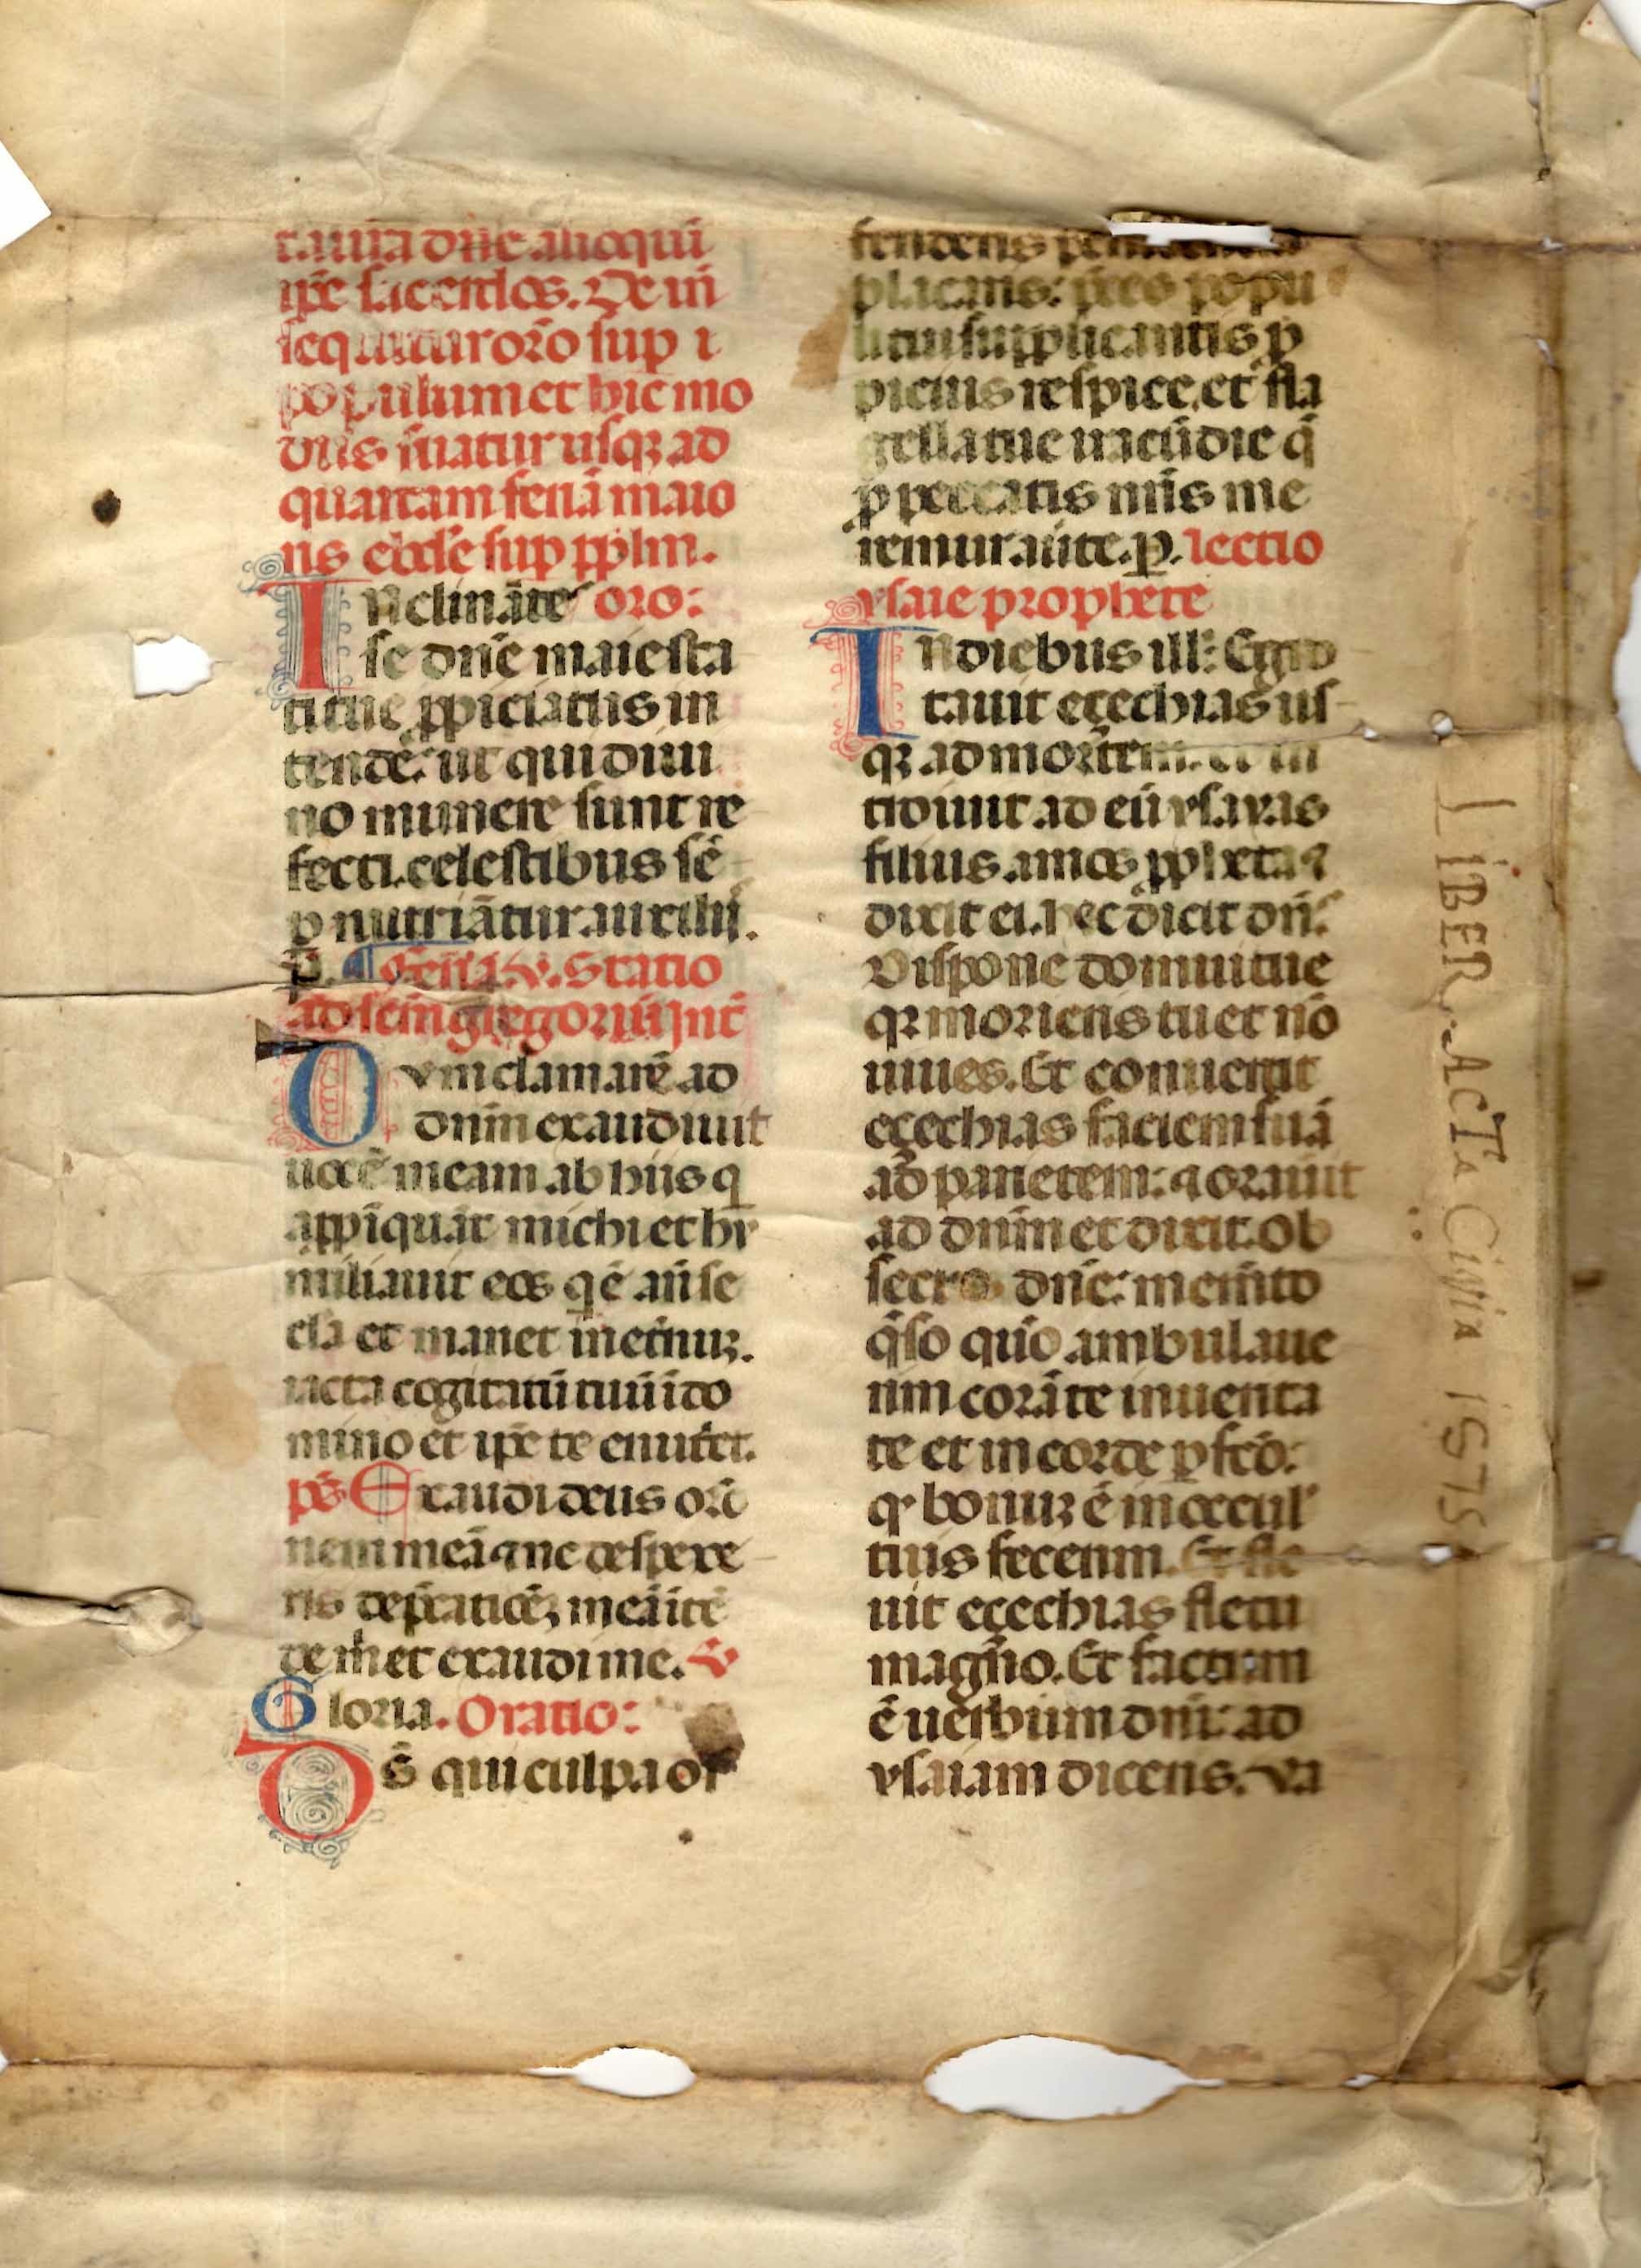 ipẽ sacerdos. De in
sequitur or̃o sup i
populum et hic mo
dus s̃uatur usqꝫ ad
quartam feriã maio
ris ebd̃e sup pp̃lm.
Inclinãte or̃o:
se dñe maiesta
ti tue ꝓpiciatus in
tendẽ: ut qui diui
no munere sunt re
fecti. celestibus sẽ
ꝑ nutriãtur auxiliĩ.
ꝑ. ¶ Feria. v. Statio
ad sc̃m gregoriũ Int̃
Dum clamarẽ ad
dñm exaudiuit
uocẽ meam ab hiis q
app̃iquãt michi et hu
miliauit eos q̃ ẽ añ se
cla et manet inet̃nuꝫ.
iacta cogitatũ tuũ ĩ do
mino et ip̃e te enut̃et.
pš Exaudi deus orõ
nem meã ⁊ ne despexe
ris dep̃catioẽꝫ meã ĩtẽ
de m̃ et exaudi me. ℣
Gloria. Oratio:
Ds̃ qui culpa of
fenderis
placaris: p̃ces popu
li tui supplicantis ꝓ
picius respice. et fla
gella tue iracũdie q̃
ꝓ peccatis nr̃is me
remur auẽte. ꝑ. lectio
ysaie prophete
In diebus ill̃: Egro
tauit eçechias us
qꝫ ad mortem. et in
troiuit ad eũ ysayas
filius amos ꝓpheta ⁊
dixit ei. hec dicit dñs̃.
Dispone domui tue
qꝛ morieris tu et nõ
uiues. Et conuertit
eçechias faciem suã
ad parietem: ⁊ orauit
ad dñm et dixit. Ob
secro dñe: memẽto
q̃so quõ ambulaue
rim corã te in uerita
te et in corde ꝑfc̃o:
qꝛ bonuꝫ ẽ in occul̃
tuis fecerim. Et fle
uit eçechias fletu
magño. Et factum
ẽ uerbum dñi: ad
ysaiam dicens. Va
LIBER. ACTa Civia 1575